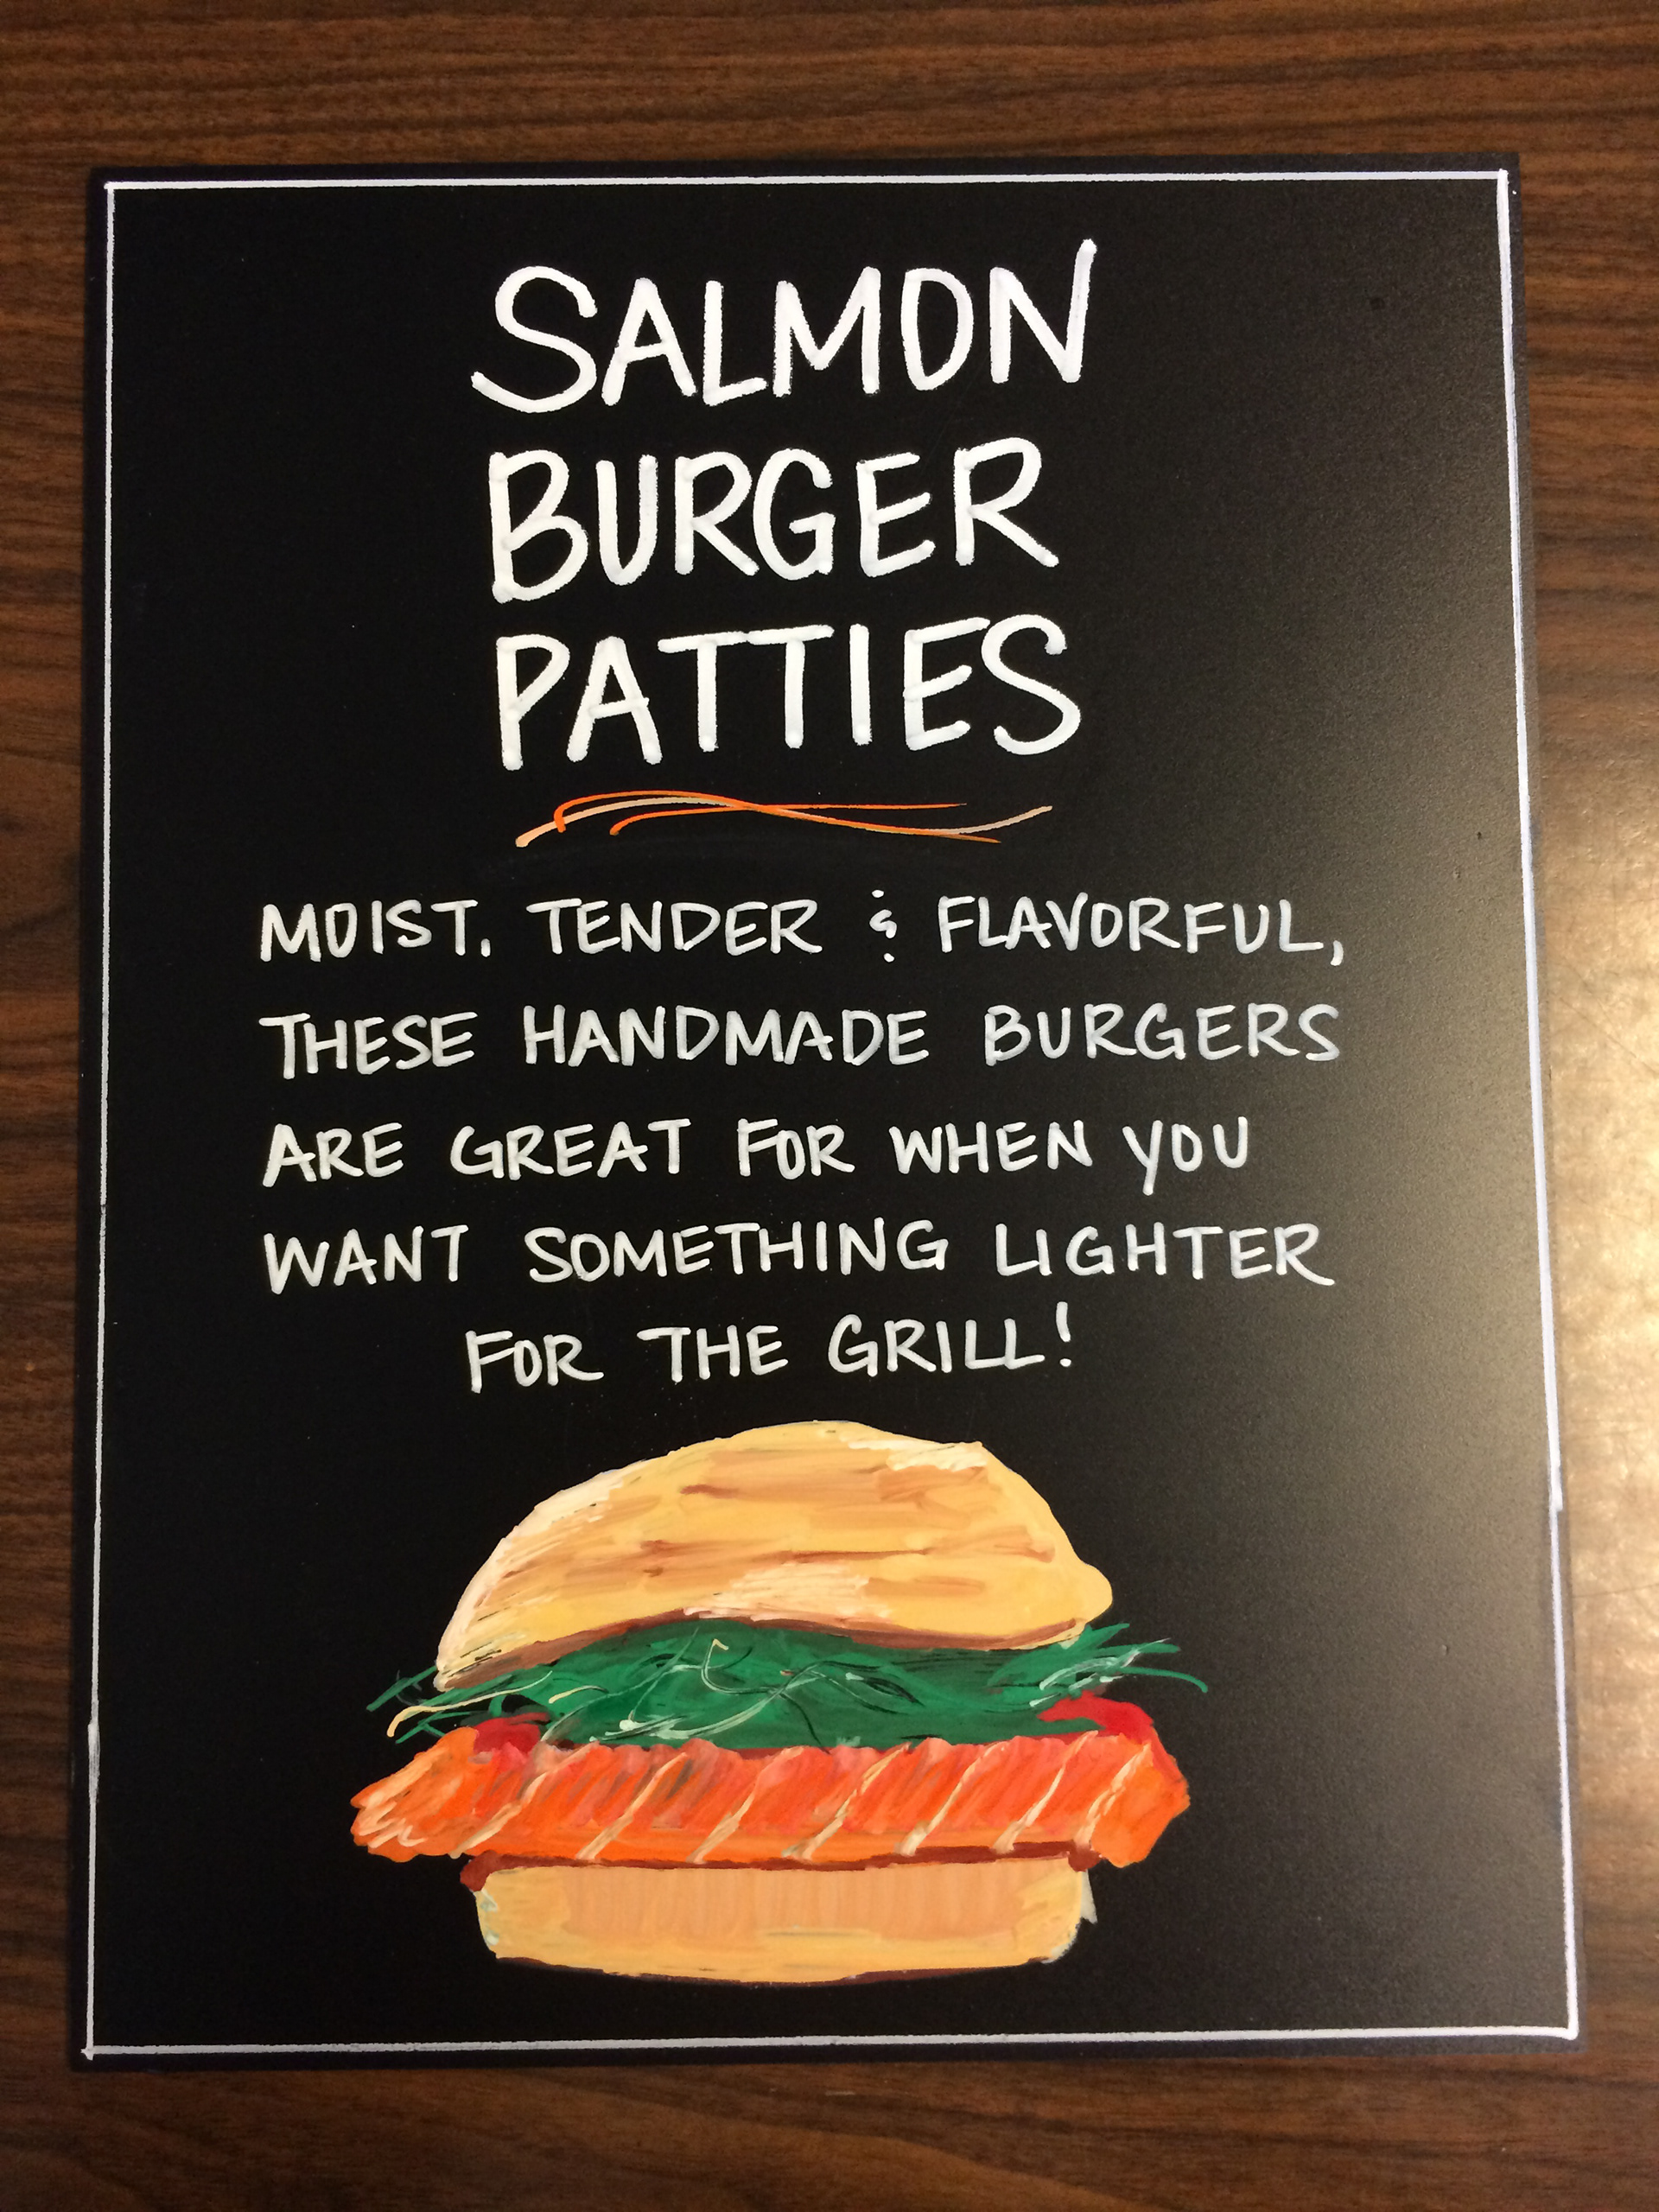 SALMON
BURGER
PATTIES
MOIST, TENDER & FLAVORFUL,
THESE HANDMADE BURGERS
ARE GREAT FOR WHEN YOU
WANT SOMETHING LIGHTER
FOR THE GRILL!